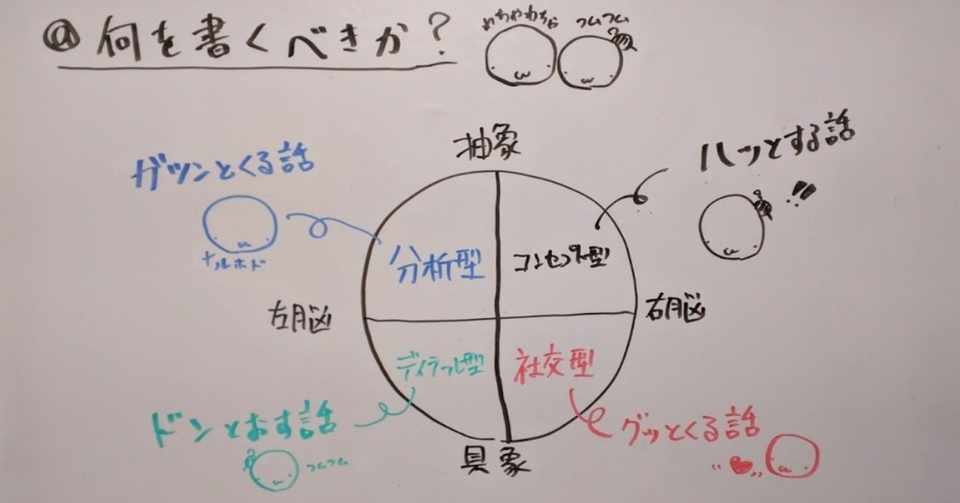 @ 何を書くべきか?
めちゃわちゃ
つムつム
抽象
ガツンとくる話
ハッとする話
!!
ナルホド
分析型
コンセプト型
左脳
右脳
ディテール型
社交型
ドンとおす話
グッとくる話
つムつム
具象